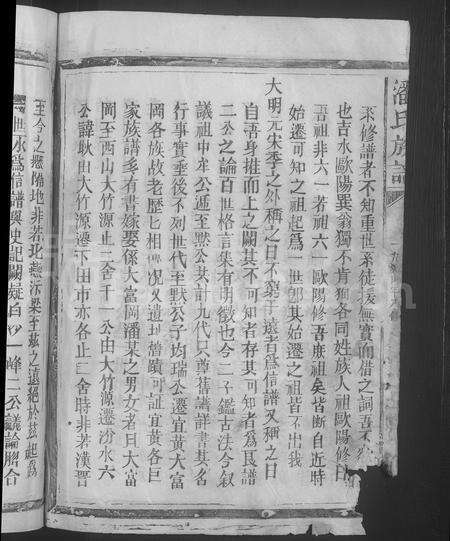 潘氏族譜
不修譜者不知重世系徒援無實而借之詞吾不
也吉水歐陽巽翁獨不肯狥各同姓族人祖歐陽修曰
吾祖非六一若祖六一歐陽修吾廢祖矣皆斷自近時
始遷可知之祖起為一世即其始遷之祖皆不出我
大明元宋季之外稱之曰不窮于遠者為信譜又稱之曰
自吾身推而上之闕其不可知者存其可知者為良譜
二公之論百世格言集有明徵也今二子鑑古法今叙
議祖中牟公逓至默公共計九代只草舊譜詳書其名
行事實垂後不列世代至默公子均瑞公遷宜黄大富
岡各族故老歷匕相傳況又遺址墻蹟可証宜黄各巨
家族譜多有書嫁娶係大富岡潘某之男女者且大富
岡至西山大竹源止二舍千一公由大竹源遷汾水六
公諱耿田大竹源遷下田市亦各止二舍時非若漢晋
至今之遐隔地非若北燕汴梁至茲之遠絕於茲起為
一世永為信譜與史記闕疑自〇一峰二公議論脗合